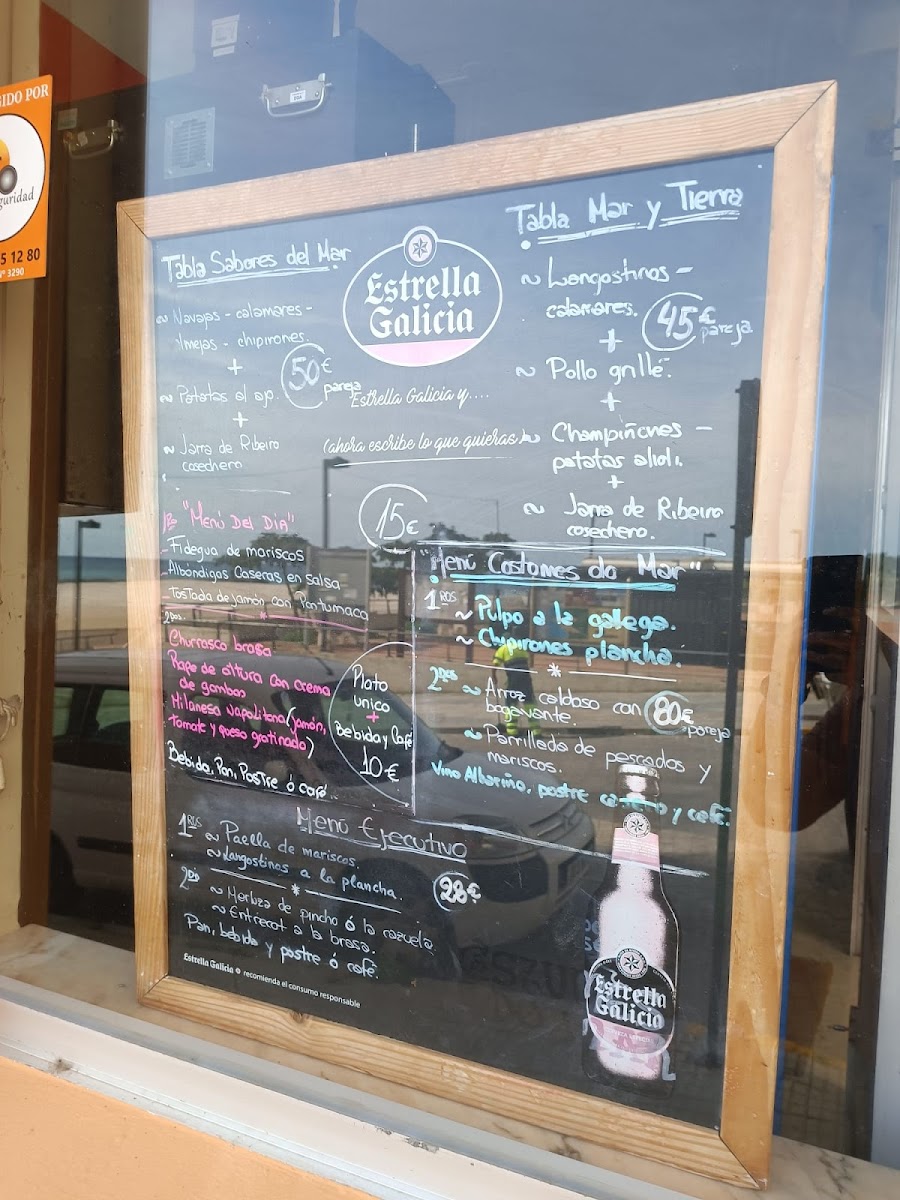 GIDO POR
guridad
5 12 80
Nº 3290
Tabla Sabores del Mar
~ Navajas - calamares -
lmejas - chipirones.
+
50€
pareja
~ Patatas al ajo.
+
~ Jarra de Ribeiro
cosechero
Estrella
Galicia
Estrella Galicia y....
(ahora escribe lo que quieras)
Tabla Mar y Tierra
~ Langostinos -
calamares.
45€
pareja
+
~ Pollo grillé.
+
~ Champiñones -
patatas alioli.
+
~ Jarra de Ribeiro
cosechero.
15€
1ºs "Menú Del Día"
- Fidegua de mariscos
- Albóndigas Caseras en salsa
- Tostada de jamón con Pantumaca
*
2dos.
Churrasco brasa
Rape de altura con crema
de gambas
Milanesa napolitana (jamón,
tomate y queso gratinado)
Bebida, Pan, Postre ó café.
Plato
unico
+
Bebida y Café
10€
"Menú Costomes do Mar"
1ROS
~ Pulpo a la gallega.
~ Chipirones plancha.
*
2dos
~ Arroz caldoso con
bogavante.
80€
pareja
~ Parrillada de pescados y
mariscos.
Vino Albariño, postre casero y café.
Menú Ejecutivo
1ROS
~ Paella de mariscos.
~ Langostinos a la plancha.
*
28€
2dos
~ Merluza de pincho ó la cazuela.
~ Entrecot a la brasa.
Pan, bebida y postre ó café.
Estrella Galicia recomienda el consumo responsable
Estrella
Galicia